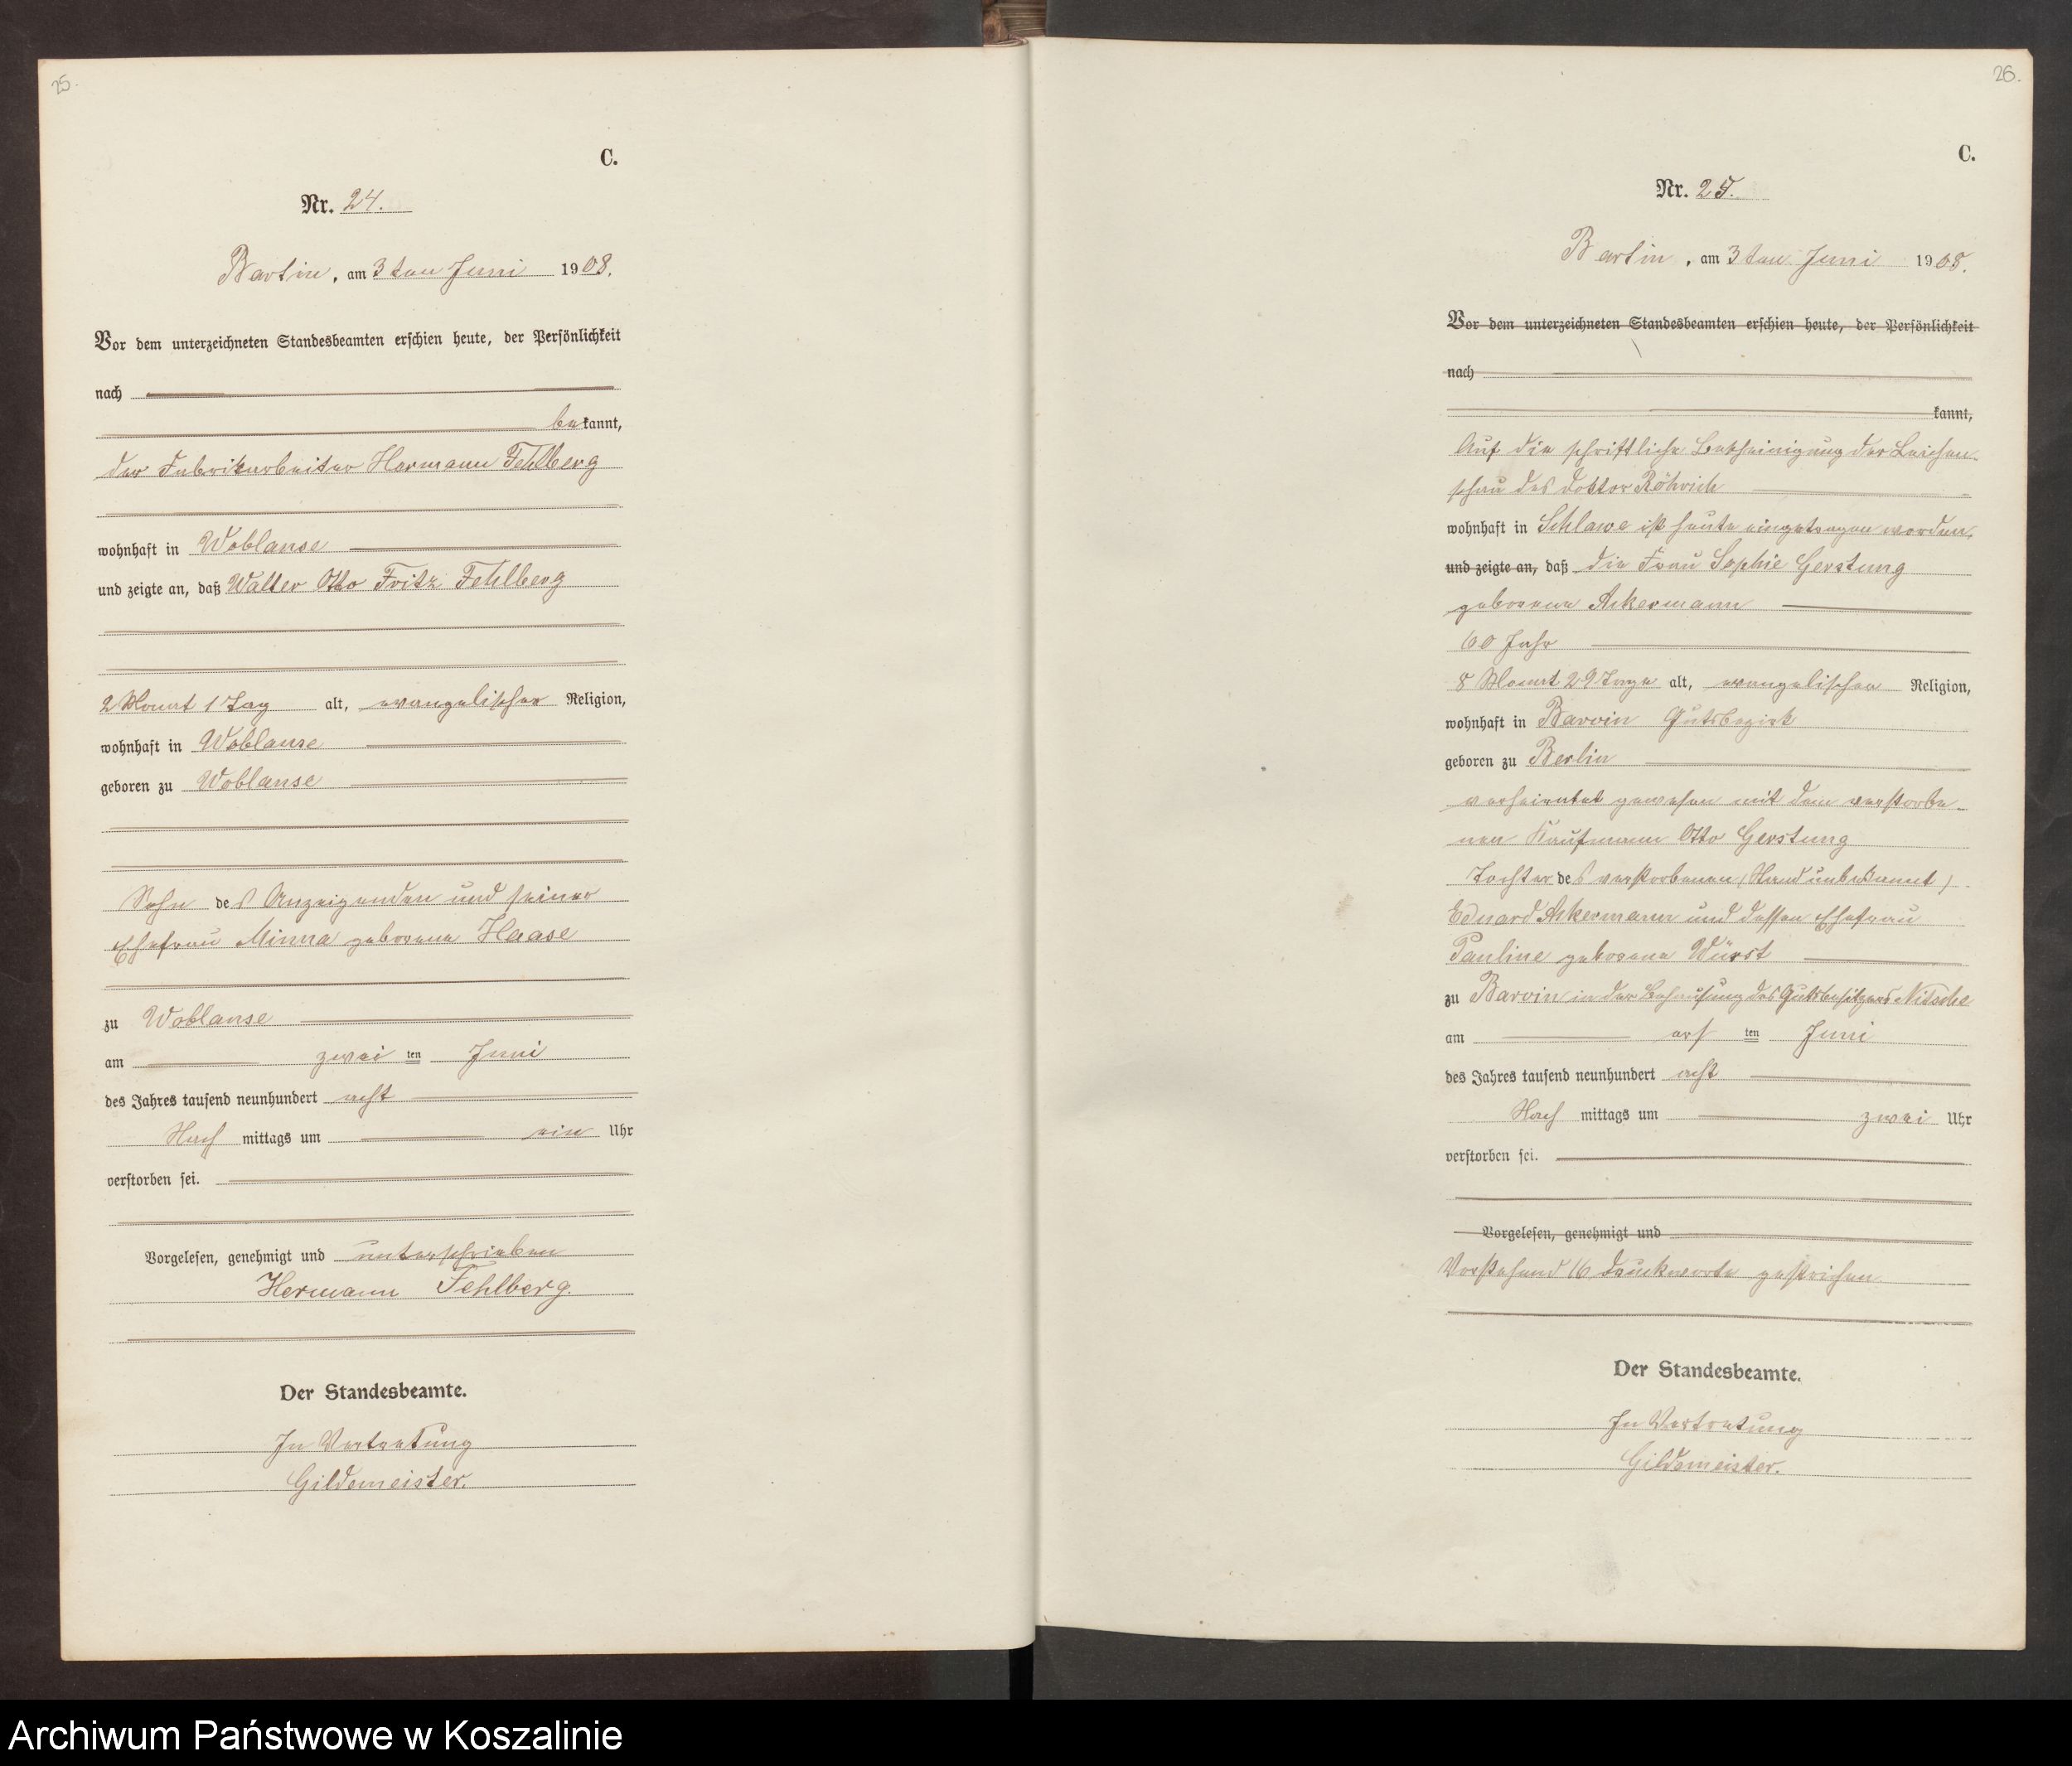 25.
C.
Nr. 24.
Bartin, am 3ten Juni 1908.
Vor dem unterzeichneten Standesbeamten erschien heute, der Persönlichkeit
nach
bekannt,
der Fabrikarbeiter Hermann Fehlberg
wohnhaft in Woblanse
und zeigte an, daß Walter Otto Fritz Fehlberg
2 Monat 1 Tag alt, evangelischer Religion,
wohnhaft in Woblanse
geboren zu Woblanse
Sohn des Anzeigenden und seiner
Ehefrau Minna geborene Haase
zu Woblanse
am zwei ten Juni
des Jahres tausend neunhundert acht
Nach mittags um ein Uhr
verstorben sei.
Vorgelesen, genehmigt und unterschrieben
Hermann Fehlberg.
Der Standesbeamte.
In Vertretung
Gildemeister.
26.
C.
Nr. 25.
Bartin, am 3ten Juni 1908.
Vor dem unterzeichneten Standesbeamten erschien heute, der Persönlichkeit
nach
kannt,
Auf die schriftliche Bescheinigung der Leichen-
schau des Doktor Röhrich
wohnhaft in Schlawe ist heute eingetragen worden,
und zeigte an, daß die Frau Sophie Gerstung
geborene Ackermann
60 Jahr
8 Monat 29 Tage alt, evangelischer Religion,
wohnhaft in Barvin Gutsbezirk
geboren zu Berlin
verheiratet gewesen mit dem verstorbe-
nen Kaufmann Otto Gerstung
Tochter des verstorbenen (Stand unbekannt)
Eduard Ackermann und dessen Ehefrau
Pauline geborene Würst
zu Barvin in der Behausung des Gutsbesitzers Nitsche
am ers ten Juni
des Jahres tausend neunhundert acht
Nach mittags um zwei Uhr
verstorben sei.
Vorgelesen, genehmigt und
Vorstehend 16 Druckworte gestrichen
Der Standesbeamte.
In Vertretung
Gildemeister.
Archiwum Państwowe w Koszalinie